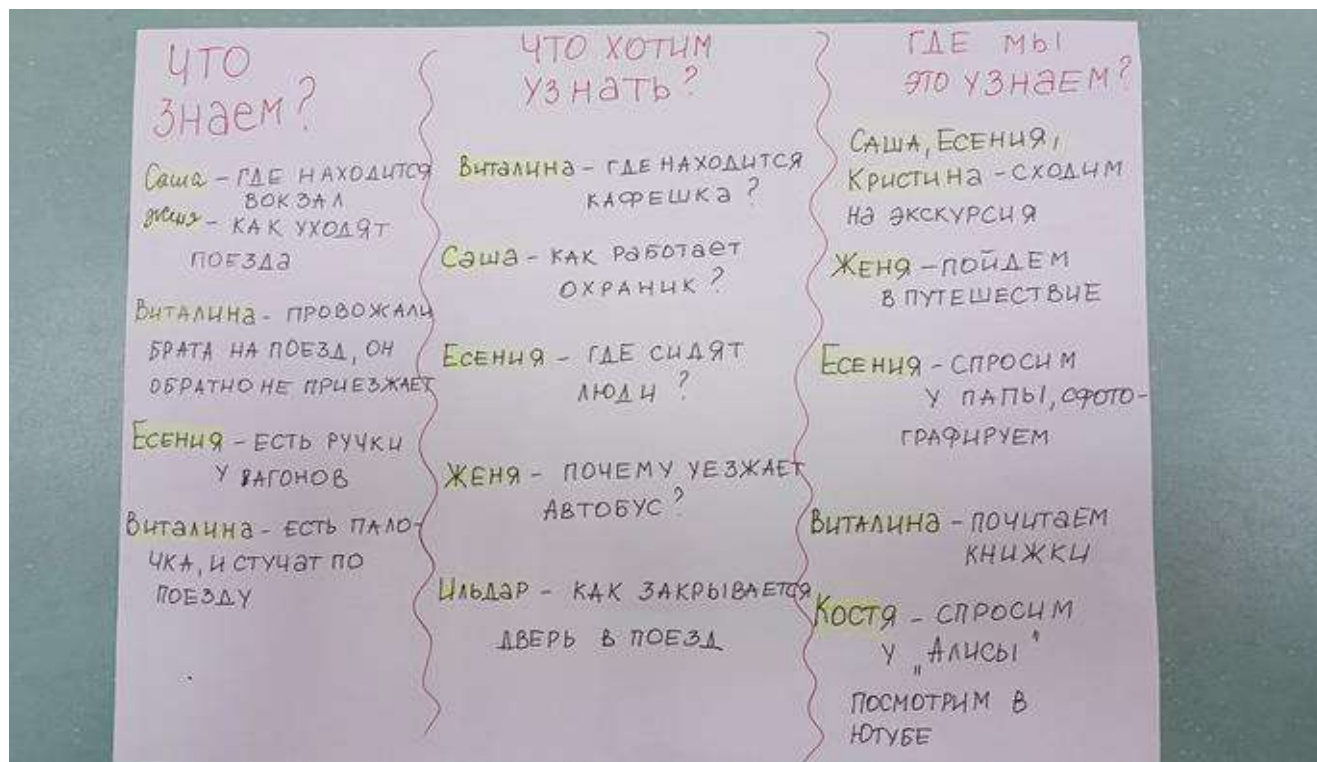 ЧТО
знаем?
Саша - ГДЕ НАХОДИТСЯ
ВОКЗАЛ
Женя - КАК УХОДЯТ
ПОЕЗДА
Виталина - ПРОВОЖАЛИ
БРАТА НА ПОЕЗД, ОН
ОБРАТНО НЕ ПРИЕЗЖАЕТ
ЕСЕНИЯ - ЕСТЬ РУЧКИ
У ВАГОНОВ
Виталина - ЕСТЬ ПАЛО-
ЧКА, И СТУЧАТ ПО
ПОЕЗДУ
ЧТО ХОТИМ
УЗНАТЬ?
Виталина - ГДЕ НАХОДИТСЯ
КАФЕШКА?
Саша - КАК РАБОТАЕТ
ОХРАНИК?
ЕСЕНИЯ - ГДЕ СИДЯТ
ЛЮДИ?
ЖЕНЯ - ПОЧЕМУ УЕЗЖАЕТ
АВТОБУС?
ИЛЬДАР - КАК ЗАКРЫВАЕТСЯ
ДВЕРЬ В ПОЕЗД
ГДЕ МЫ
ЭТО УЗНАЕМ?
САША, ЕСЕНИЯ,
КРИСТИНА - СХОДИМ
НА ЭКСКУРСИЯ
ЖЕНЯ - ПОЙДЕМ
В ПУТЕШЕСТВИЕ
ЕСЕНИЯ - СПРОСИМ
У ПАПЫ, СФОТО-
ГРАФИРУЕМ
ВИТАЛИНА - ПОЧИТАЕМ
КНИЖКИ
КОСТЯ - СПРОСИМ
У „АЛИСЫ"
ПОСМОТРИМ В
ЮТУБЕ